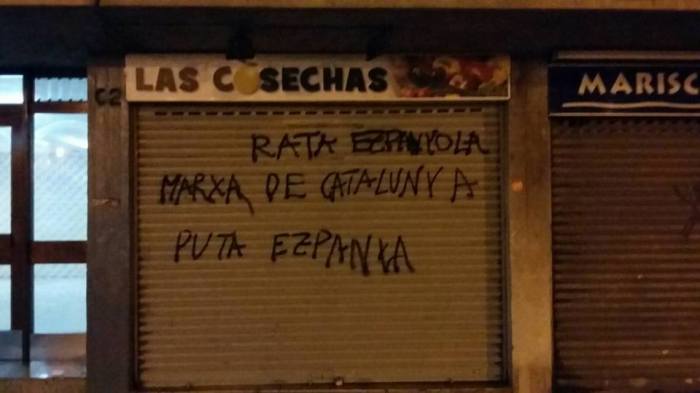 LAS COSECHAS
MARISC
C2
RATA EZPANYOLA
MARXA DE CATALUNYA
PUTA EZPANYA